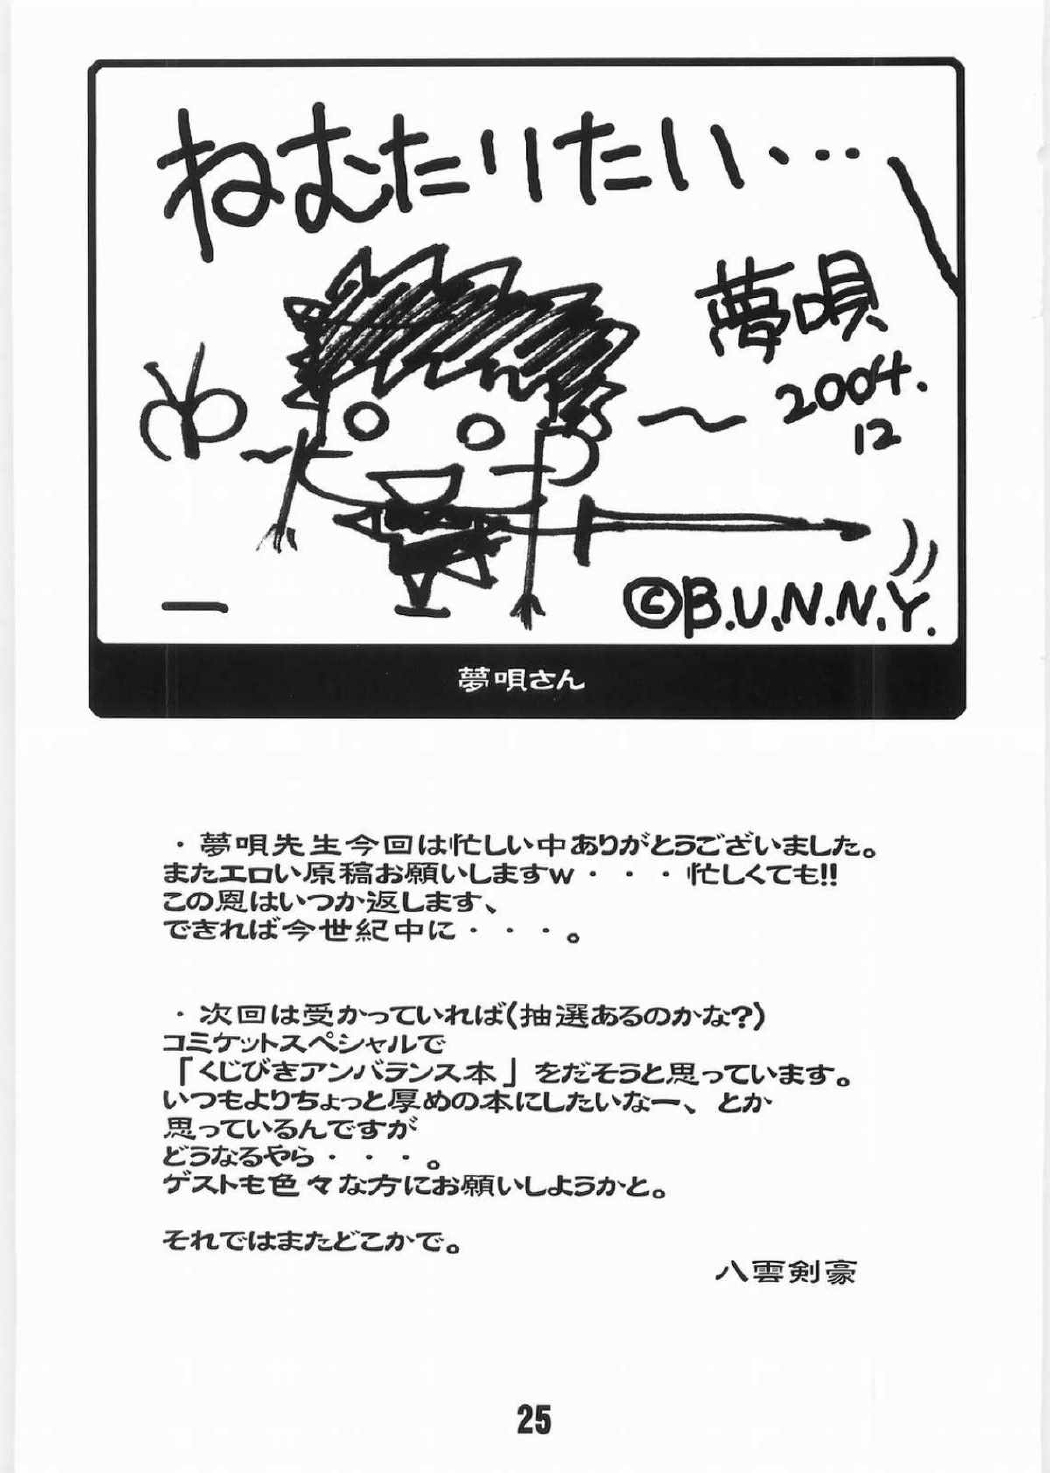 ねむたりたい・・・
夢唄
2004.
12
©B.U.N.N.Y.
夢唄さん
・夢唄先生今回は忙しい中ありがとうございました。
またエロい原稿お願いしますw・・・忙しくても!!
この恩はいつか返します、
できれば今世紀中に・・・。
・次回は受かっていれば(抽選あるのかな?)
コミケットスペシャルで
「くじびきアンバランス本」をだそうと思っています。
いつもよりちょっと厚めの本にしたいなー、とか
思っているんですが
どうなるやら・・・。
ゲストも色々な方にお願いしようかと。
それではまたどこかで。
八雲剣豪
25